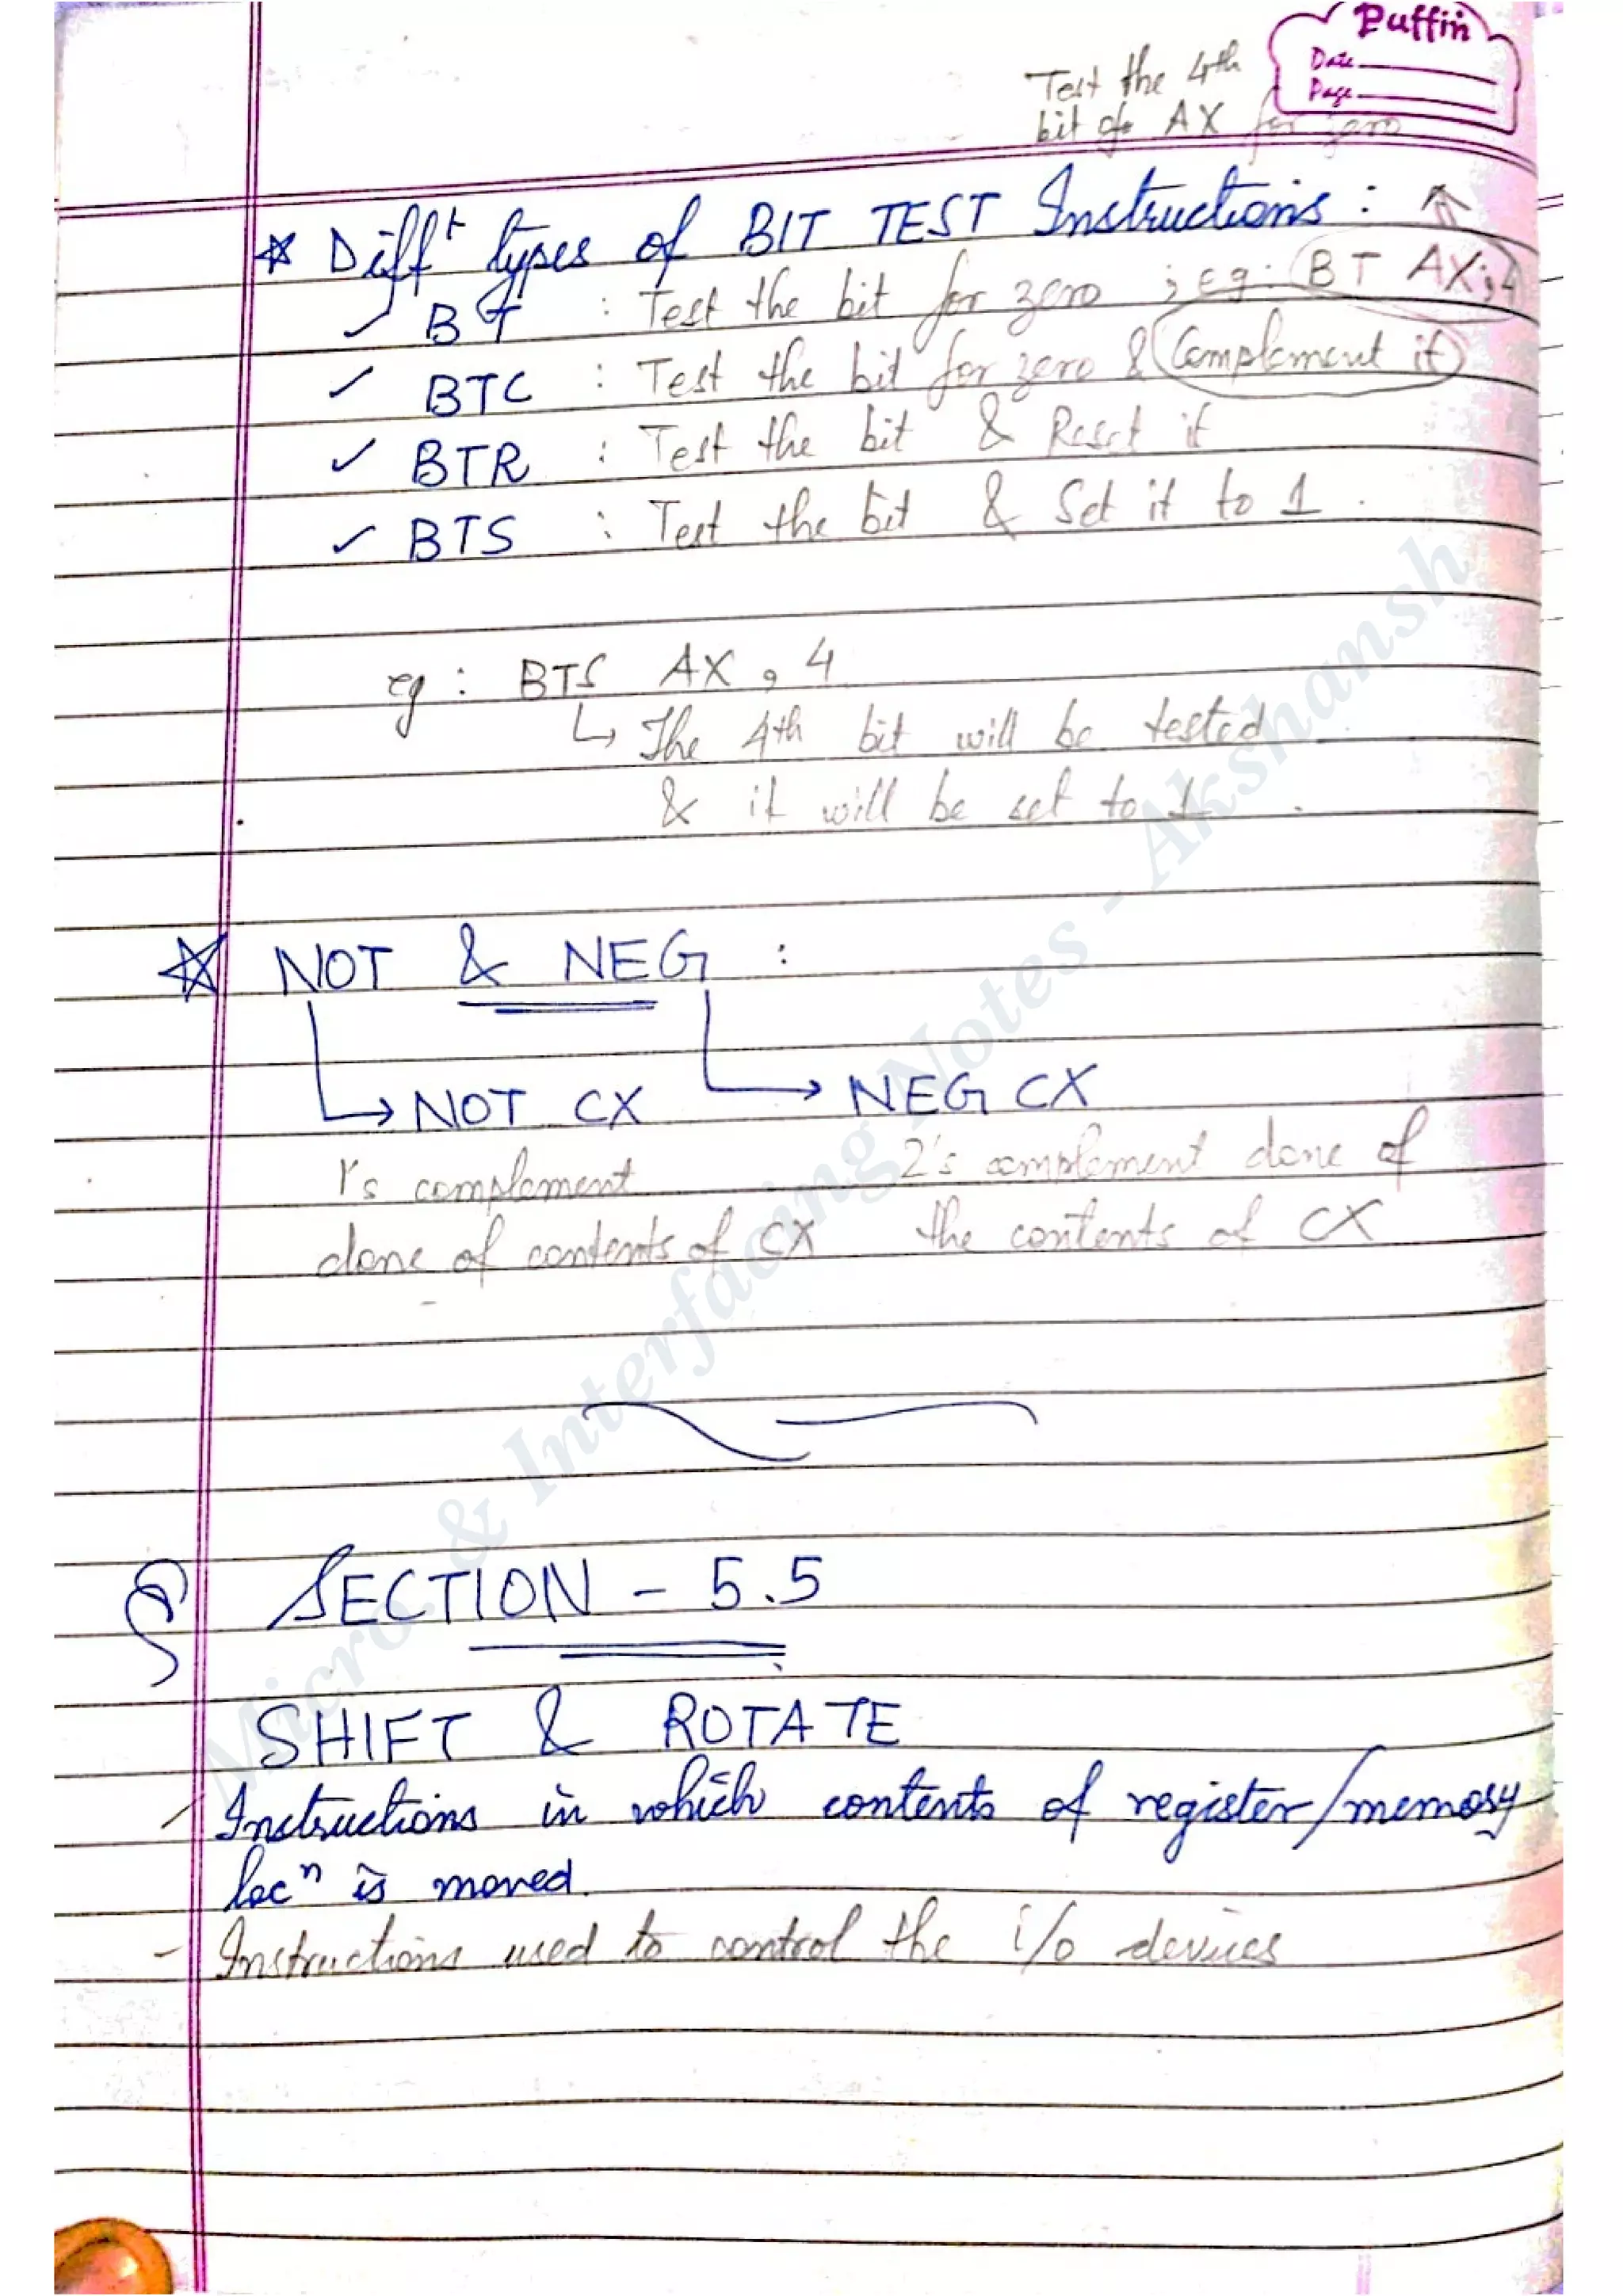 Puffin
Date
Page
Test the 4th
bit of AX for zero
* Difft types of BIT TEST Instructions :
✓ BT : Test the bit for zero ; eg: BT AX, 4
✓ BTC : Test the bit for zero & Complement it
✓ BTR : Test the bit & Reset it
✓ BTS : Test the bit & Set it to 1.
eg : BTS AX, 4
↳ The 4th bit will be tested
& it will be set to 1.
☆ NOT & NEG :
→ NOT CX → NEG CX
1's complement 2's complement done of
done of contents of CX the contents of CX
SECTION - 5.5
SHIFT & ROTATE
- Instructions in which contents of register/memory
locn is moved.
- Instructions used to control the i/o devices
Micro. & Interfacing Notes - Akshansh